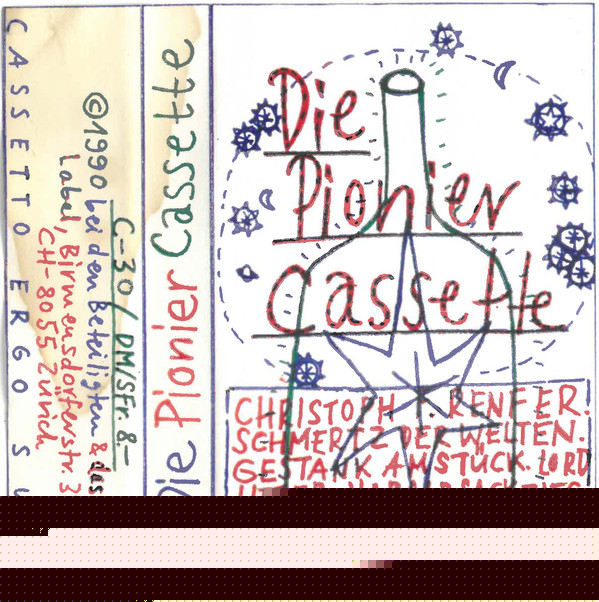 CASSETTO ERGO SU
©1990 bei den Beteiligten & das
Label, Birmensdörferstr. 3
CH-8055 Zürich
C-30 / DM/SFr. 8.-
Die Pionier Cassette
Die
Pionier
Cassette
CHRISTOPH P. RENFER.
SCHMERTZ DER WELTEN.
GESTANK AM STÜCK. LORD